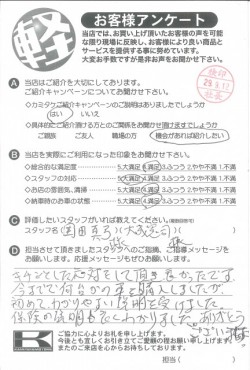 軽
お客様アンケート
当店では、お買い上げ頂いたお客様の声を可能
な限り現場に反映し、お客様により良い商品と
サービスを提供する事に努めています。
大変お手数ですが是非お声をお聞かせ下さい。
A 当店はご紹介を大切にしております。
ご紹介キャンペーンについてお聞かせ下さい。
◇カミタケご紹介キャンペーンのご説明はありましたでしょうか
はい いいえ
◇具体的にご紹介頂ける方とのご関係をお聞かせ頂けますでしょうか
ご親族 ご友人 職場の方 機会があれば紹介したい
B 当店を実際にご利用になった印象をお聞かせ下さい。
◇総合的な満足度 5.大満足 4.満足 3.ふつう 2.やや不満 1.不満
◇スタッフの対応 5.大満足 4.満足 3.ふつう 2.やや不満 1.不満
◇お店の雰囲気、清掃 5.大満足 4.満足 3.ふつう 2.やや不満 1.不満
◇納車時のお車の状態 5.大満足 4.満足 3.ふつう 2.やや不満 1.不満
C 評価したいスタッフがいれば教えてください。
スタッフ名
D 担当させて頂きましたスタッフへのご指摘、ご指導メッセージを
お願いします。応援メッセージもぜひお願いします。
キチンとした応対をして頂き良かったです。
今まで何台か車を購入しましたが、
初めてわかりやすい説明を受けました。
保険の説明も良くわかりました。ありがとう
ございました。
K
ご協力に心よりお礼を申し上げます。
今後とも宜しくお引き立てご愛顧の程お願い申し上げます。
またのご来店を心からお待ちしております。
担当( )